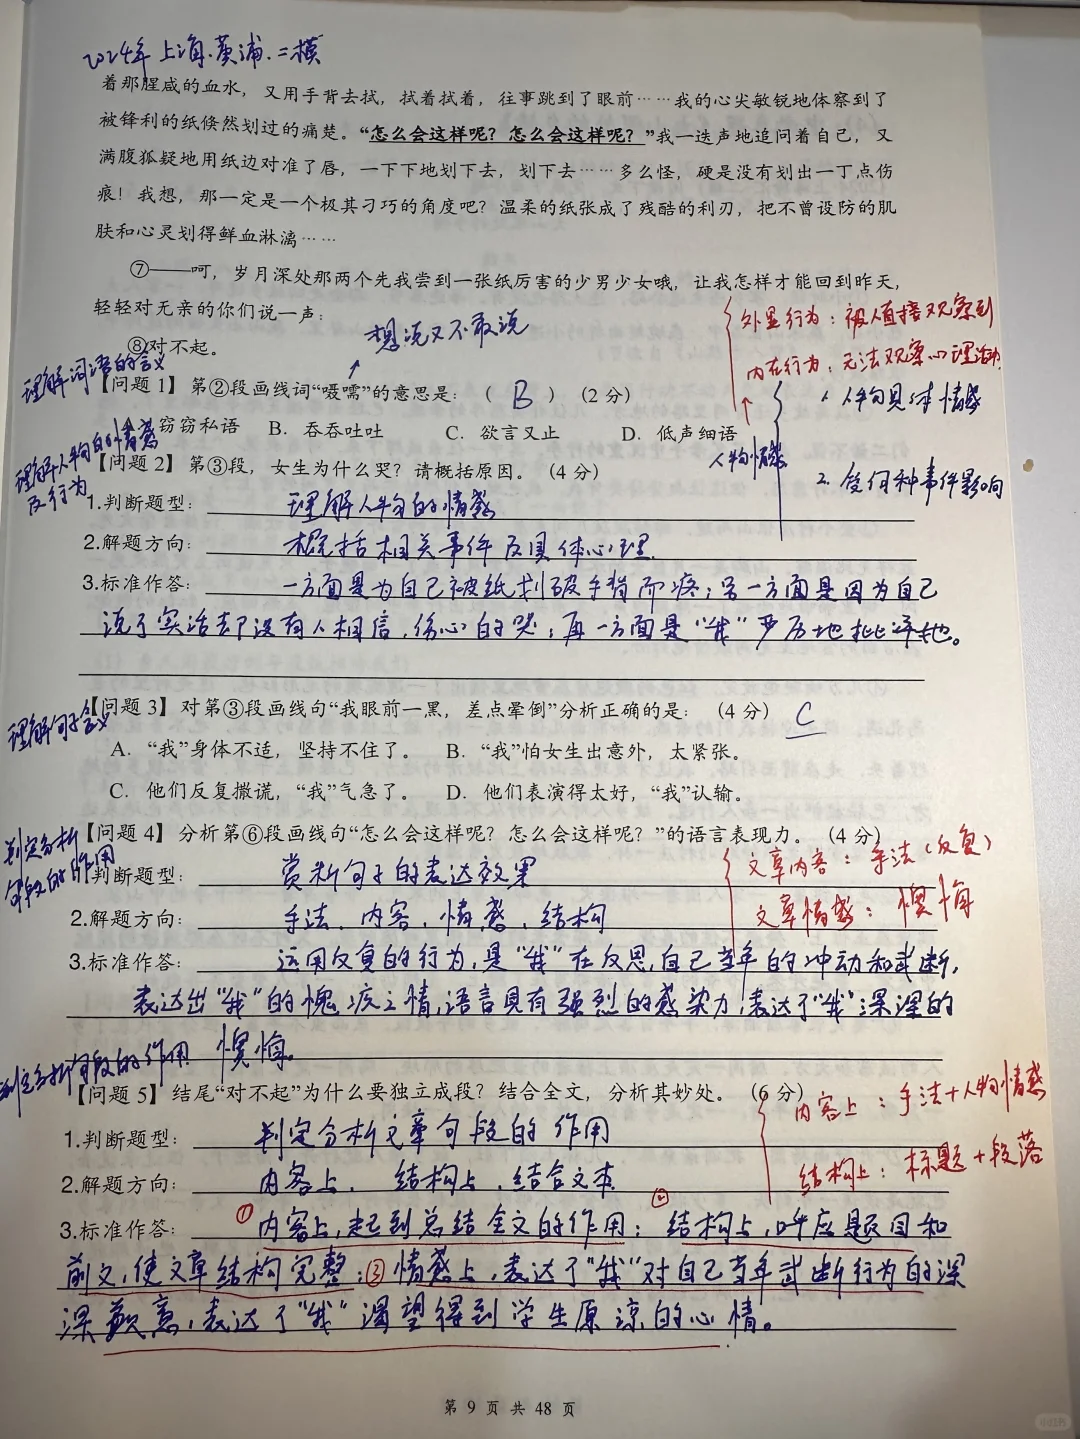 2024年上海·黄浦·二模
着那腥咸的血水，又用手背去拭，拭着拭着，往事跳到了眼前……我的心尖敏锐地体察到了
被锋利的纸倏然划过的痛楚。“怎么会这样呢？怎么会这样呢？”我一迭声地追问着自己，又
满腹狐疑地用纸边对准了唇，一下下地划下去，划下去……多么怪，硬是没有划出一丁点伤
痕！我想，那一定是一个极其刁巧的角度吧？温柔的纸张成了残酷的利刃，把不曾设防的肌
肤和心灵划得鲜血淋漓……
⑦——呵，岁月深处那两个先我尝到一张纸厉害的少男少女哦，让我怎样才能回到昨天，
轻轻对无亲的你们说一声：
⑧对不起。
想说又不敢说
外显行为：被人直接观察到
内在行为：无法观察心理活动
理解词语的含义
【问题 1】第②段画线词“嗫嚅”的意思是：（ B ）（2 分）
1. 人物具体情感
窃窃私语 B．吞吞吐吐 C．欲言又止 D．低声细语
人物情感
2. 受何种事件影响
理解人物的情感
及行为
【问题 2】第③段，女生为什么哭？请概括原因。（4 分）
1.判断题型： 理解人物的情感
2.解题方向： 概括相关事件及具体心理.
3.标准作答： 一方面是为自己被纸划破手背而疼；另一方面是因为自己
说了实话却没有人相信，伤心的哭；再一方面是“我”严厉地批评她。
理解句子含义
【问题 3】对第③段画线句“我眼前一黑，差点晕倒”分析正确的是：（4 分） C
A．“我”身体不适，坚持不住了。 B．“我”怕女生出意外，太紧张。
C．他们反复撒谎，“我”气急了。 D．他们表演得太好，“我”认输。
判定分析
句段的作用
【问题 4】分析第⑥段画线句“怎么会这样呢？怎么会这样呢？”的语言表现力。（4 分）
文章内容：手法（反复）
文章情感：懊悔
1判断题型： 赏析句子的表达效果
2.解题方向： 手法、内容，情感，结构
3.标准作答： 运用反复的行为，是“我”在反思，自己当年的冲动和武断，
表达出“我”的愧疚之情，语言具有强烈的感染力，表达了“我”深深的
懊悔。
判定分析句段的作用
【问题 5】结尾“对不起”为什么要独立成段？结合全文，分析其妙处。（6 分）
内容上：手法+人物情感
结构上：标题+段落
1.判断题型： 判定分析文章句段的作用
2.解题方向： 内容上，结构上，结合文本
3.标准作答： ①内容上，起到总结全文的作用；②结构上，呼应题目和
前文，使文章结构完整；③情感上，表达了“我”对自己当年武断行为的深
深歉意，表达了“我”渴望得到学生原谅的心情。
第 9 页 共 48 页